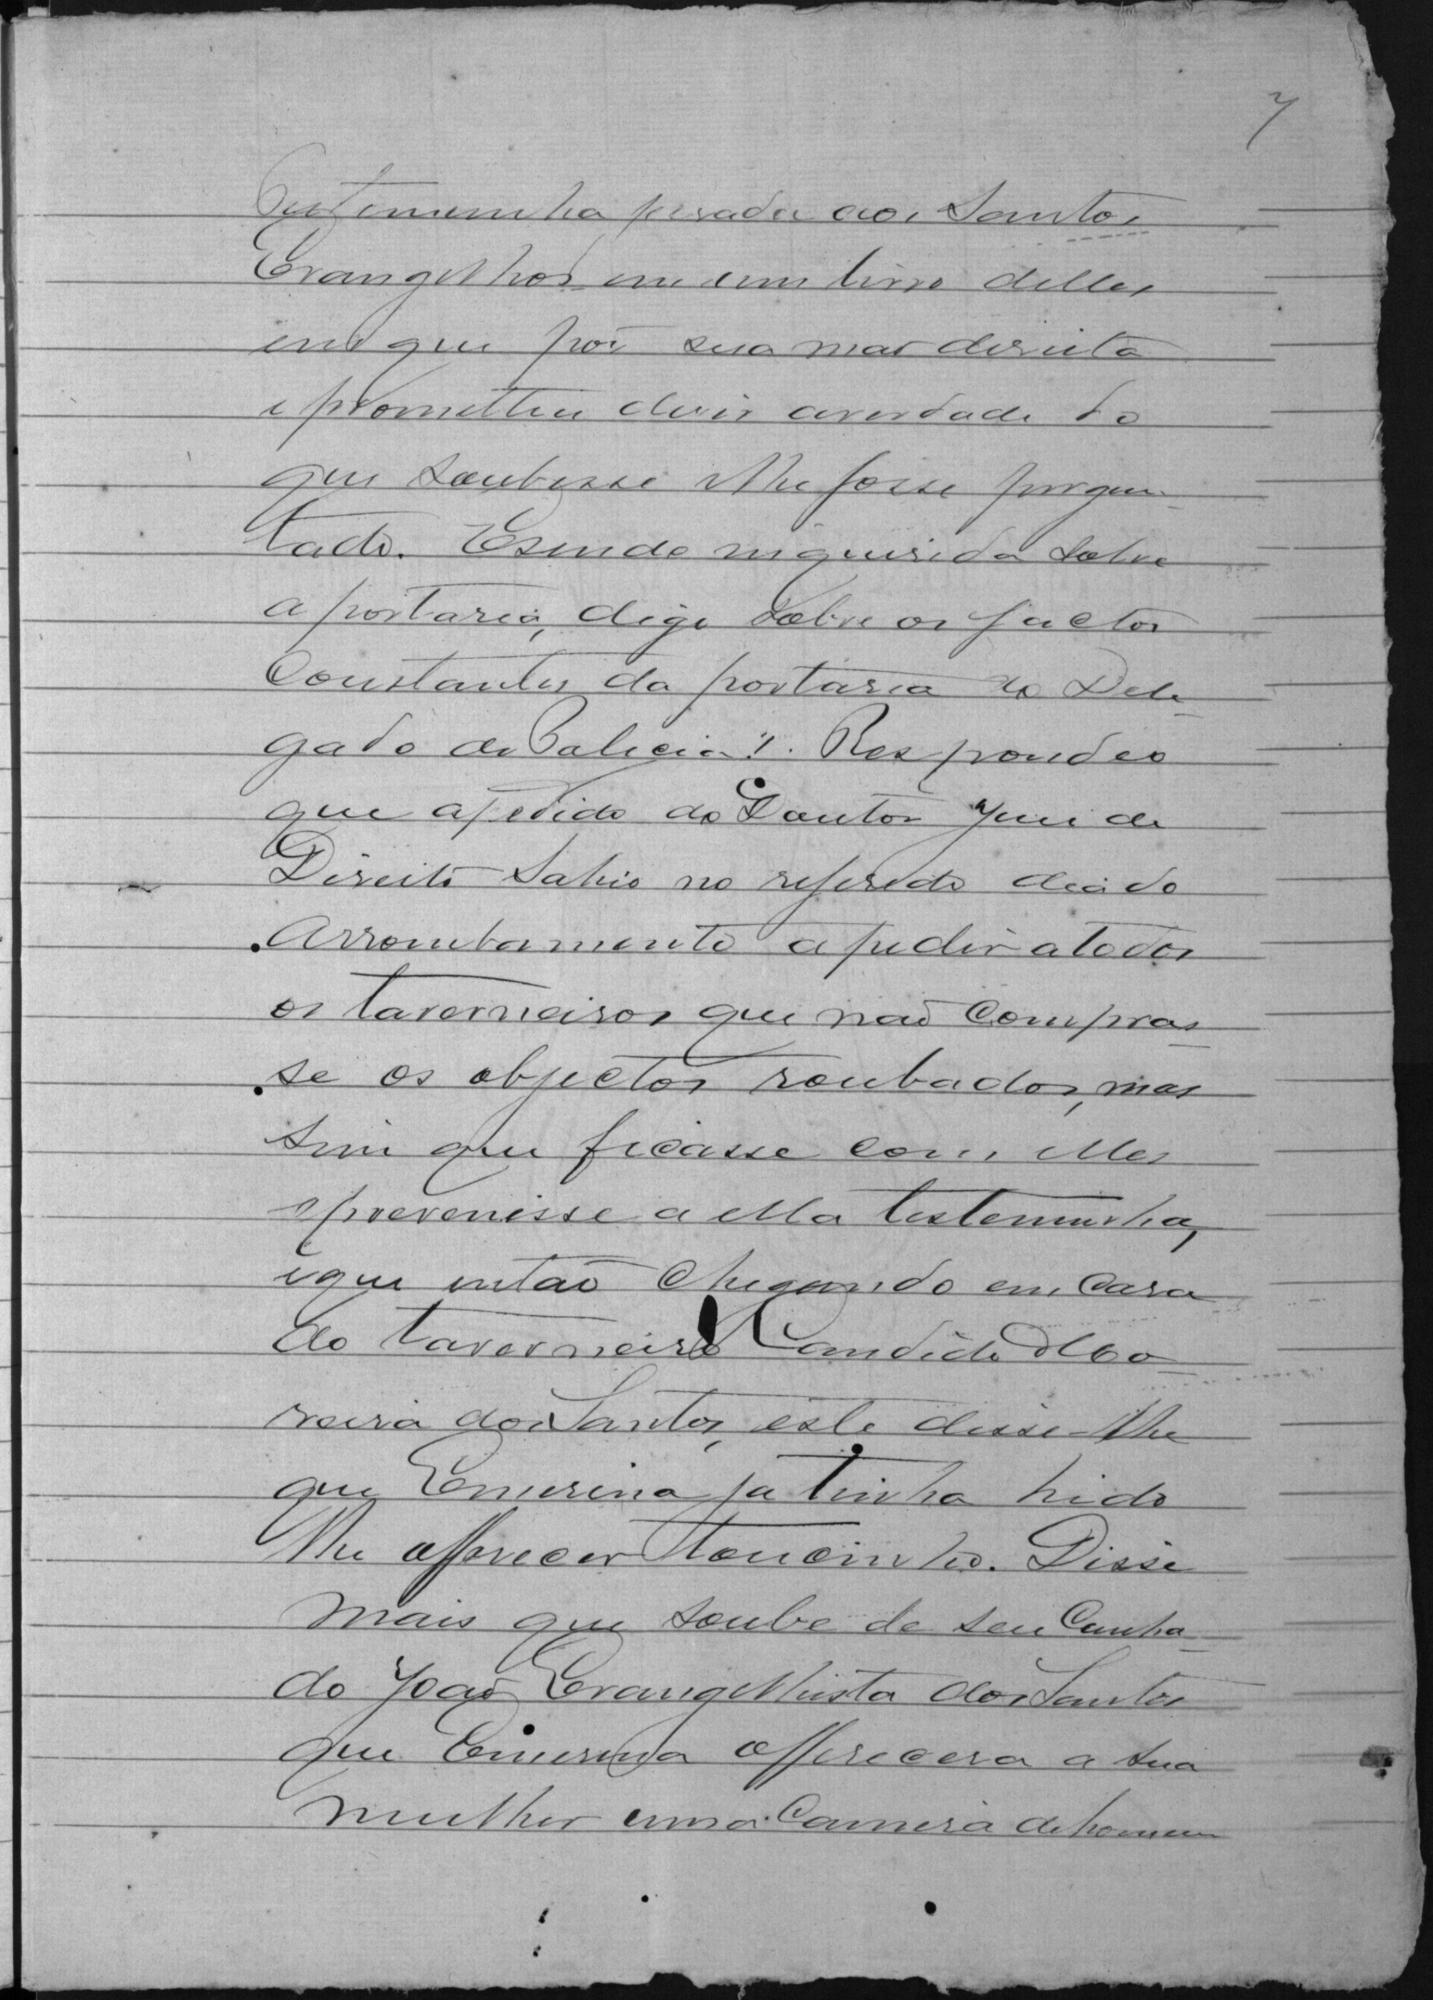 7
Testemunha jurada aos Santos
Evangelhos em um livro delles
em que pôs sua mão direita
e prometteu disir averdade do
que soubesse e lhe fosse pergun-
tado. Esendo inquirida sobre
a portaria, digo sobre os factos
Constantes da portaria do Dele-
gado de Policia? Respondeo
que apedido do Doutor Juiz de
Direito Sahio no referido dia do
arrombamento a pedir atodos
os taverneiros que não compras-
se os objectos roubados, mas
sim que ficasse com elles
e prevenisse a ella testemunha,
eque então Chegando em Casa
do taverneiro Candido Mo-
reira dos Santos, este disse-lhe
que Emerina ja tinha hido
lhe offerecer toucinho. Disse
mais que soube de seu Cunha-
do João Evangelhista dos Santos
que Emerina offerecera a sua
mulher uma Camisa dehomem